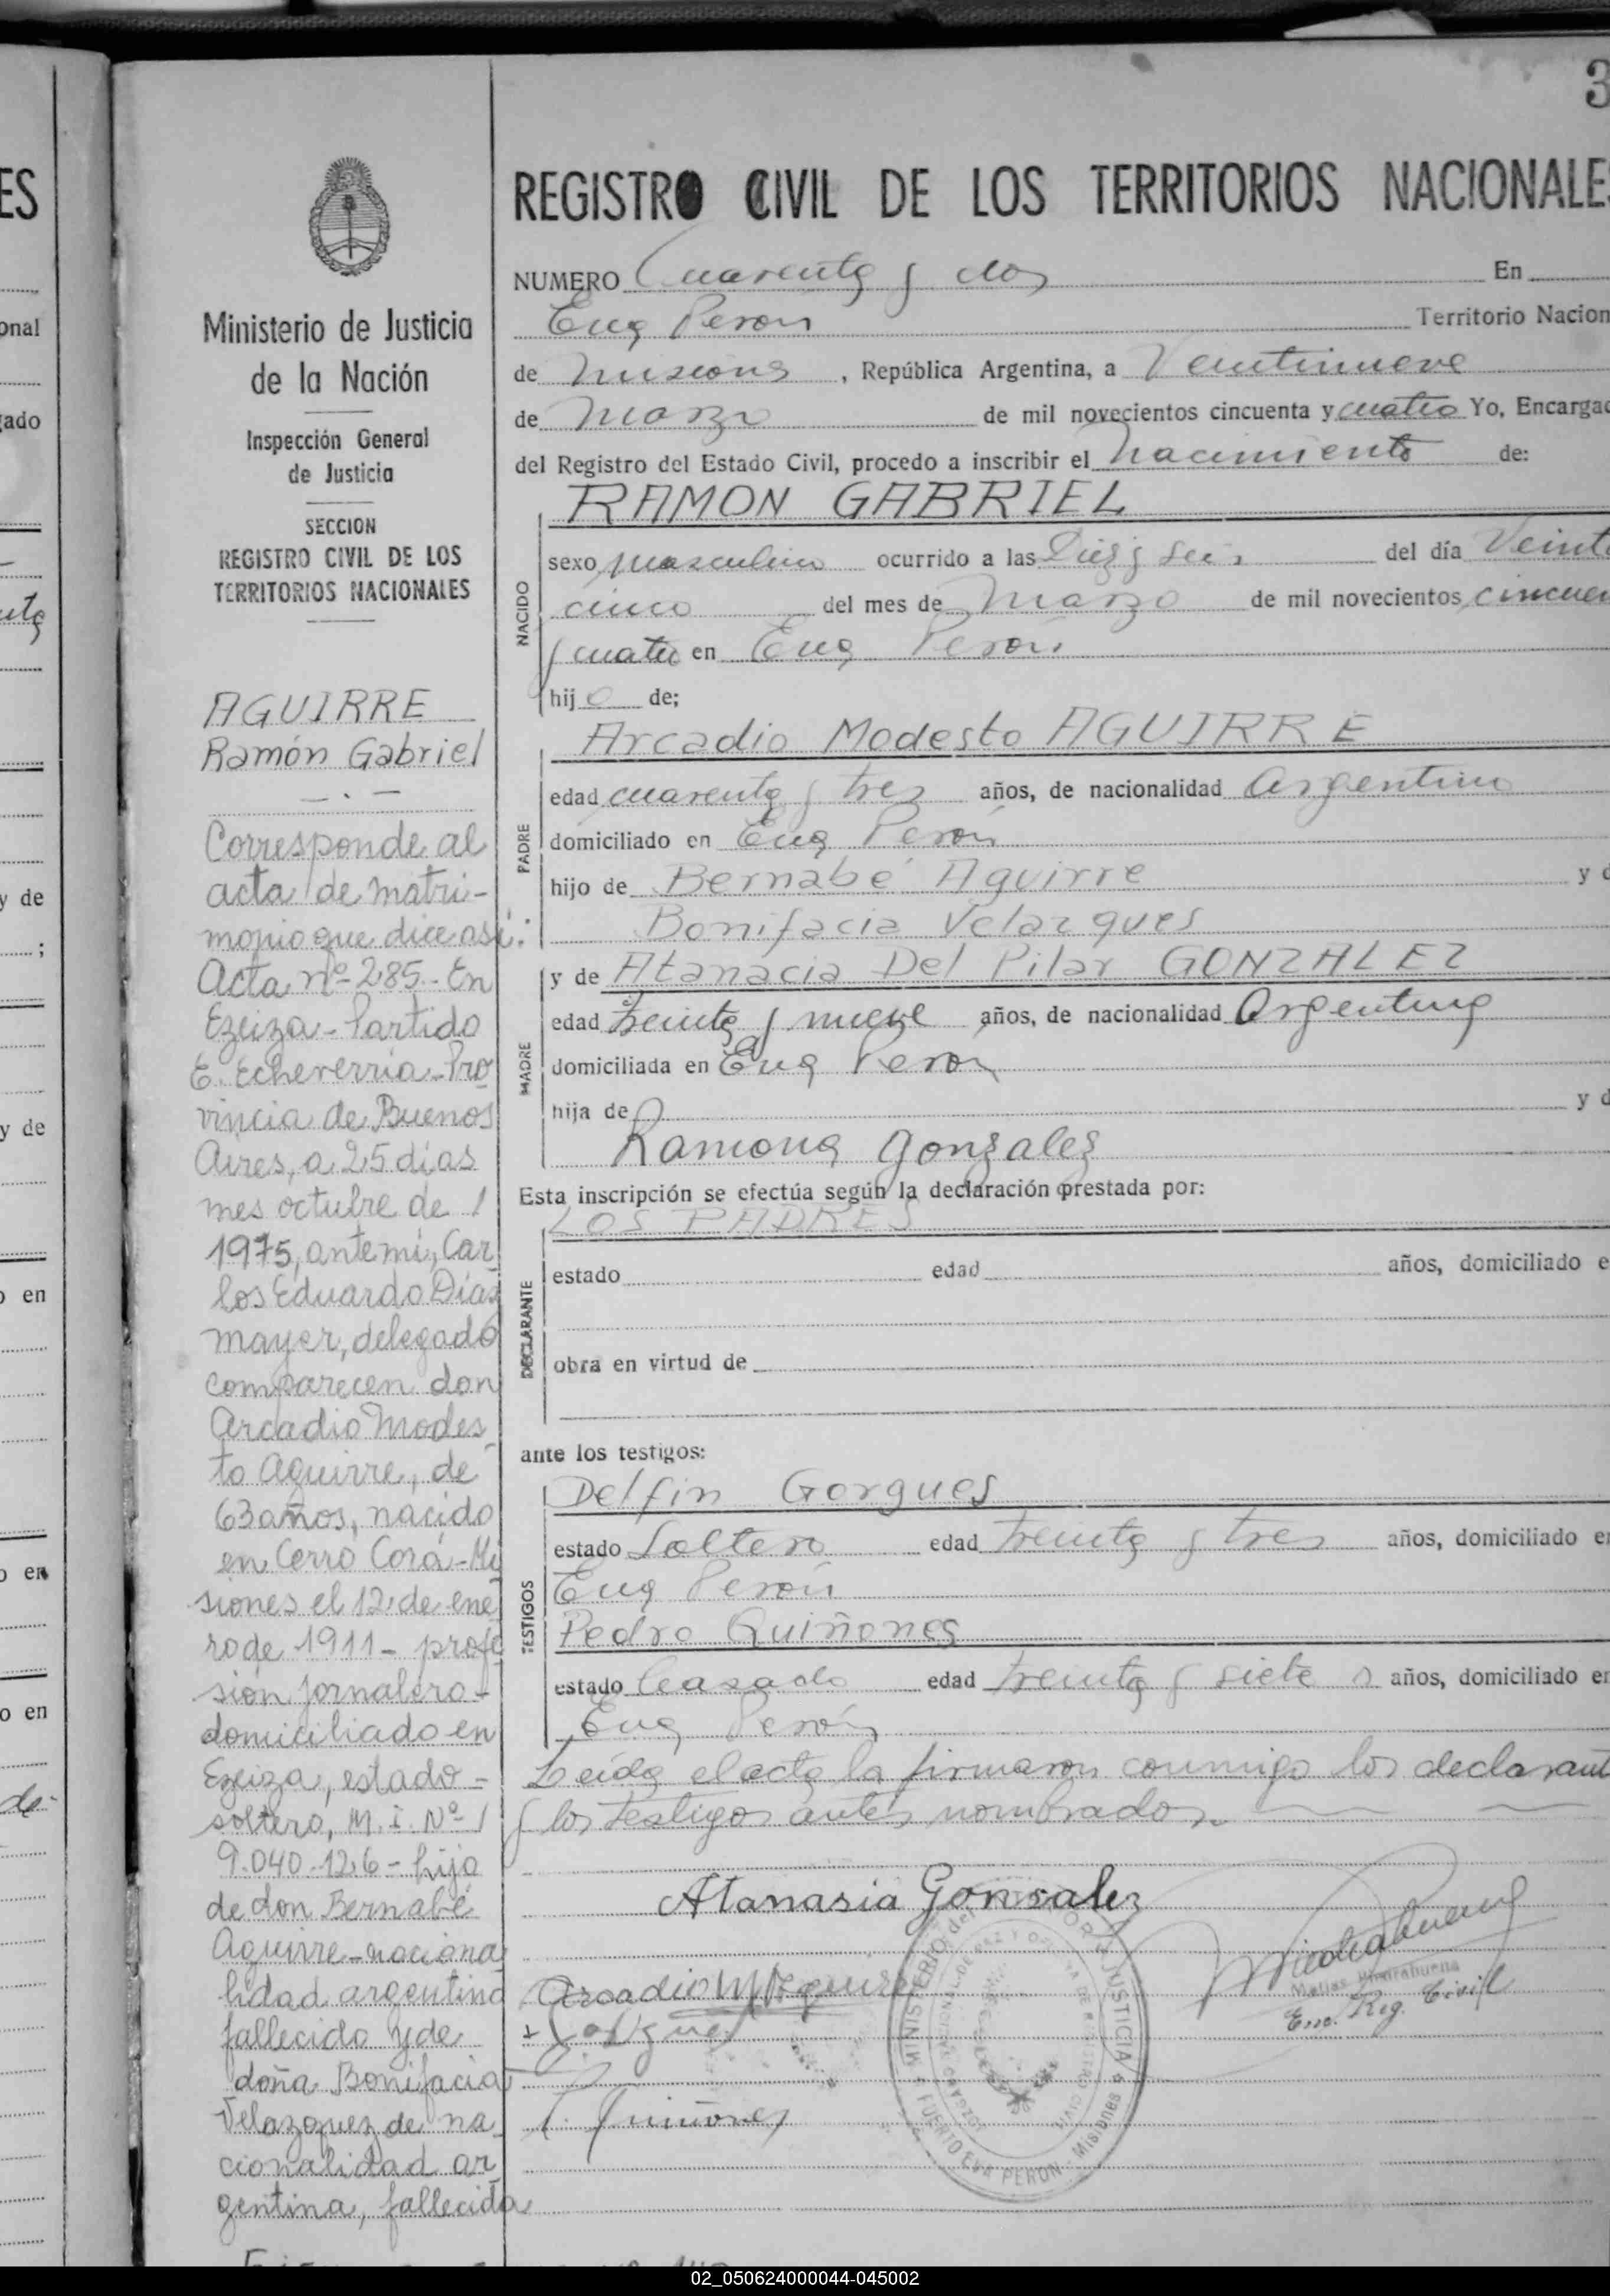 3
REGISTRO CIVIL DE LOS TERRITORIOS NACIONALES
Ministerio de Justicia
de la Nación
Inspección General
de Justicia
SECCION
REGISTRO CIVIL DE LOS
TERRITORIOS NACIONALES
AGUIRRE
Ramón Gabriel
Corresponde al
acta de matri-
monio que dice así:
Acta nº 285.- En
Ezeiza - Partido
E. Echeverría - Pro
vincia de Buenos
Aires, a 25 días
mes octubre de
1975, ante mí, Car
los Eduardo Díaz
mayer, delegado
comparecen don
Arcadio Modes-
to Aguirre, de
63 años, nacido
en Cerro Corá - Mi
siones el 12 de ene
ro de 1911 - profe
sión jornalero -
domiciliado en
Ezeiza, estado -
soltero, M. I. Nº
9.040.126 - hijo
de don Bernabé
Aguirre - naciona
lidad argentina
fallecido y de
doña Bonifacia
Velazquez de na
cionalidad ar
gentina, fallecida
NUMERO Cuarenta y dos En
Eva Perón Territorio Nacion
de Misiones , República Argentina, a Veintinueve
de Marzo de mil novecientos cincuenta y cuatro Yo, Encargad
del Registro del Estado Civil, procedo a inscribir el Nacimiento de:
RAMON GABRIEL
NACIDO
sexo masculino ocurrido a las Diez y seis del día Veinti
cinco del mes de Marzo de mil novecientos cincuen
y cuatro en Eva Perón
hijo de;
PADRE
Arcadio Modesto AGUIRRE
edad cuarenta y tres años, de nacionalidad Argentino
domiciliado en Eva Perón
hijo de Bernabé Aguirre y d
Bonifacia Velazques
MADRE
y de Atanacia Del Pilar GONZALEZ
edad treinta y nueve años, de nacionalidad Argentina
domiciliada en Eva Perón
hija de y d
Ramona Gonzalez
Esta inscripción se efectúa según la declaración prestada por:
LOS PADRES
DECLARANTE
estado edad años, domiciliado e
obra en virtud de
ante los testigos:
TESTIGOS
Delfin Gorgues
estado Soltero edad treinta y tres años, domiciliado en
Eva Perón
Pedro Quiñones
estado Casado edad treinta y siete años, domiciliado en
Eva Perón
Leída el acta la firmaron conmigo los declarant
y los testigos antes nombrados.
Atanasia Gonsalez
Arcadio M Aguirre
P. Quiñones
Enc. Reg. Civil
MINISTERIO del INTERIOR y JUSTICIA
PUERTO EVA PERON - Misiones
ES
onal
gado
y de
;
y de
o en
o en
o en
de
02_050624000044-045002